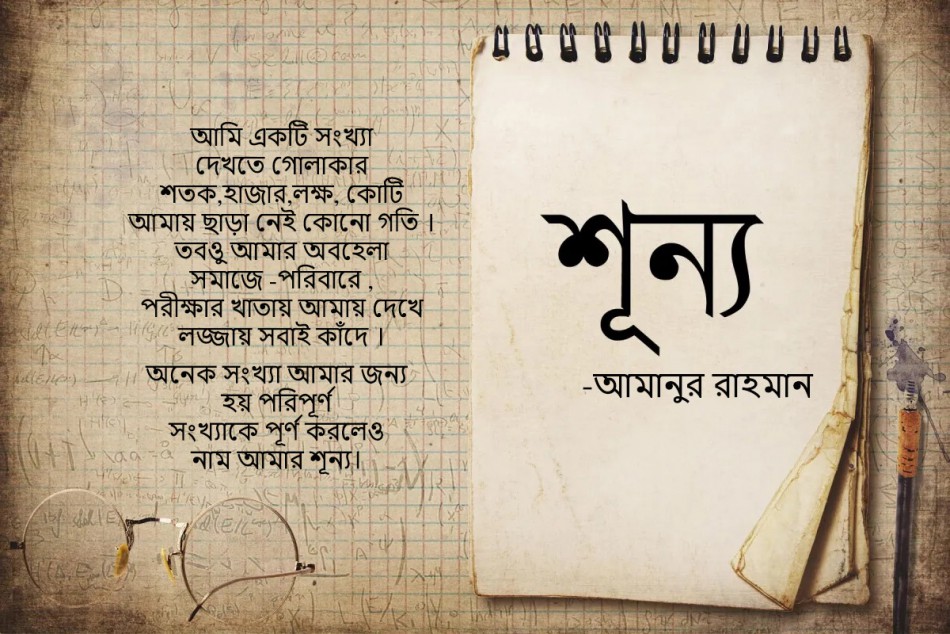 আমি একটি সংখ্যা
দেখতে গোলাকার
শতক,হাজার,লক্ষ, কোটি
আমায় ছাড়া নেই কোনো গতি ।
তবওু আমার অবহেলা
সমাজে -পরিবারে ,
পরীক্ষার খাতায় আমায় দেখে
লজ্জায় সবাই কাঁদে ।
অনেক সংখ্যা আমার জন্য
হয় পরিপূর্ণ
সংখ্যাকে পূর্ণ করলেও
নাম আমার শূন্য।
শূন্য
-আমানুর রাহমান